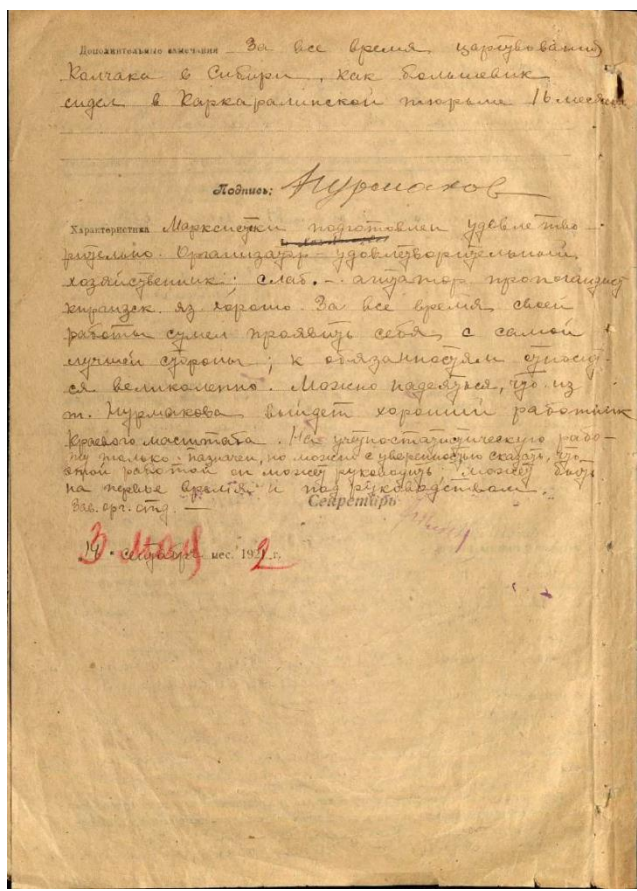 Дополнительные замечания За все время царствования
Колчака в Сибири, как большевик
сидел в Каркаралинской тюрьме 16 месяцев
Подпись: Нурмаков
Характеристика Марксистки подготовлен удовлетво-
рительно. Организатр - удовлетворительный,
хозяйственник; слаб. - агитатор пропогандист
киргизск. яз хорошо. За все время своей
работы сумел проявить себя с самой
лучшей стороны; к обязанностям относит-
ся великолепно. Можно надеяться, что из
т. Нурмакова выйдет хороший работник
Краевого масштаба. На учетностатистическую рабо-
ту только назначен, но можно с уверенностью сказать, что
этой работой он может руководить может быть
на первое время и под руководством.
Секретарь
Зав. орг. отд. —
14 сентября мес. 192 г.
3 мая 2